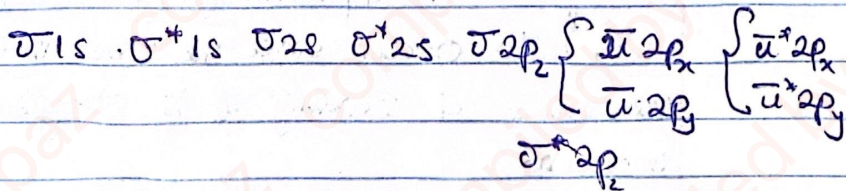 σ1s . σ*1s σ2s σ*2s σ2p_z { π2p_x { π*2p_x
π.2p_y π*2p_y
σ*2p_z